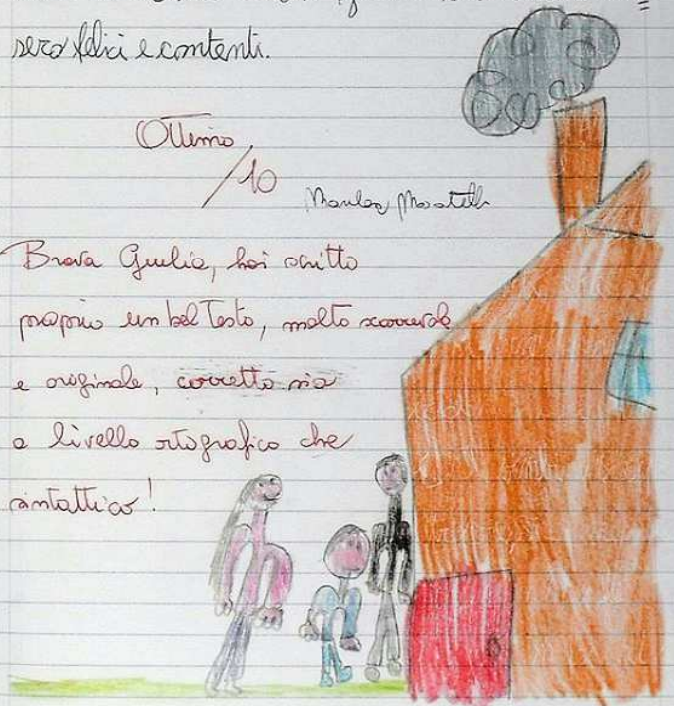 sero felici e contenti.
Ottimo
/10
Brava Giulia, hai scritto
proprio un bel Testo, molto scorrevole
e originale, corretto sia
a livello ortografico che
sintattico!